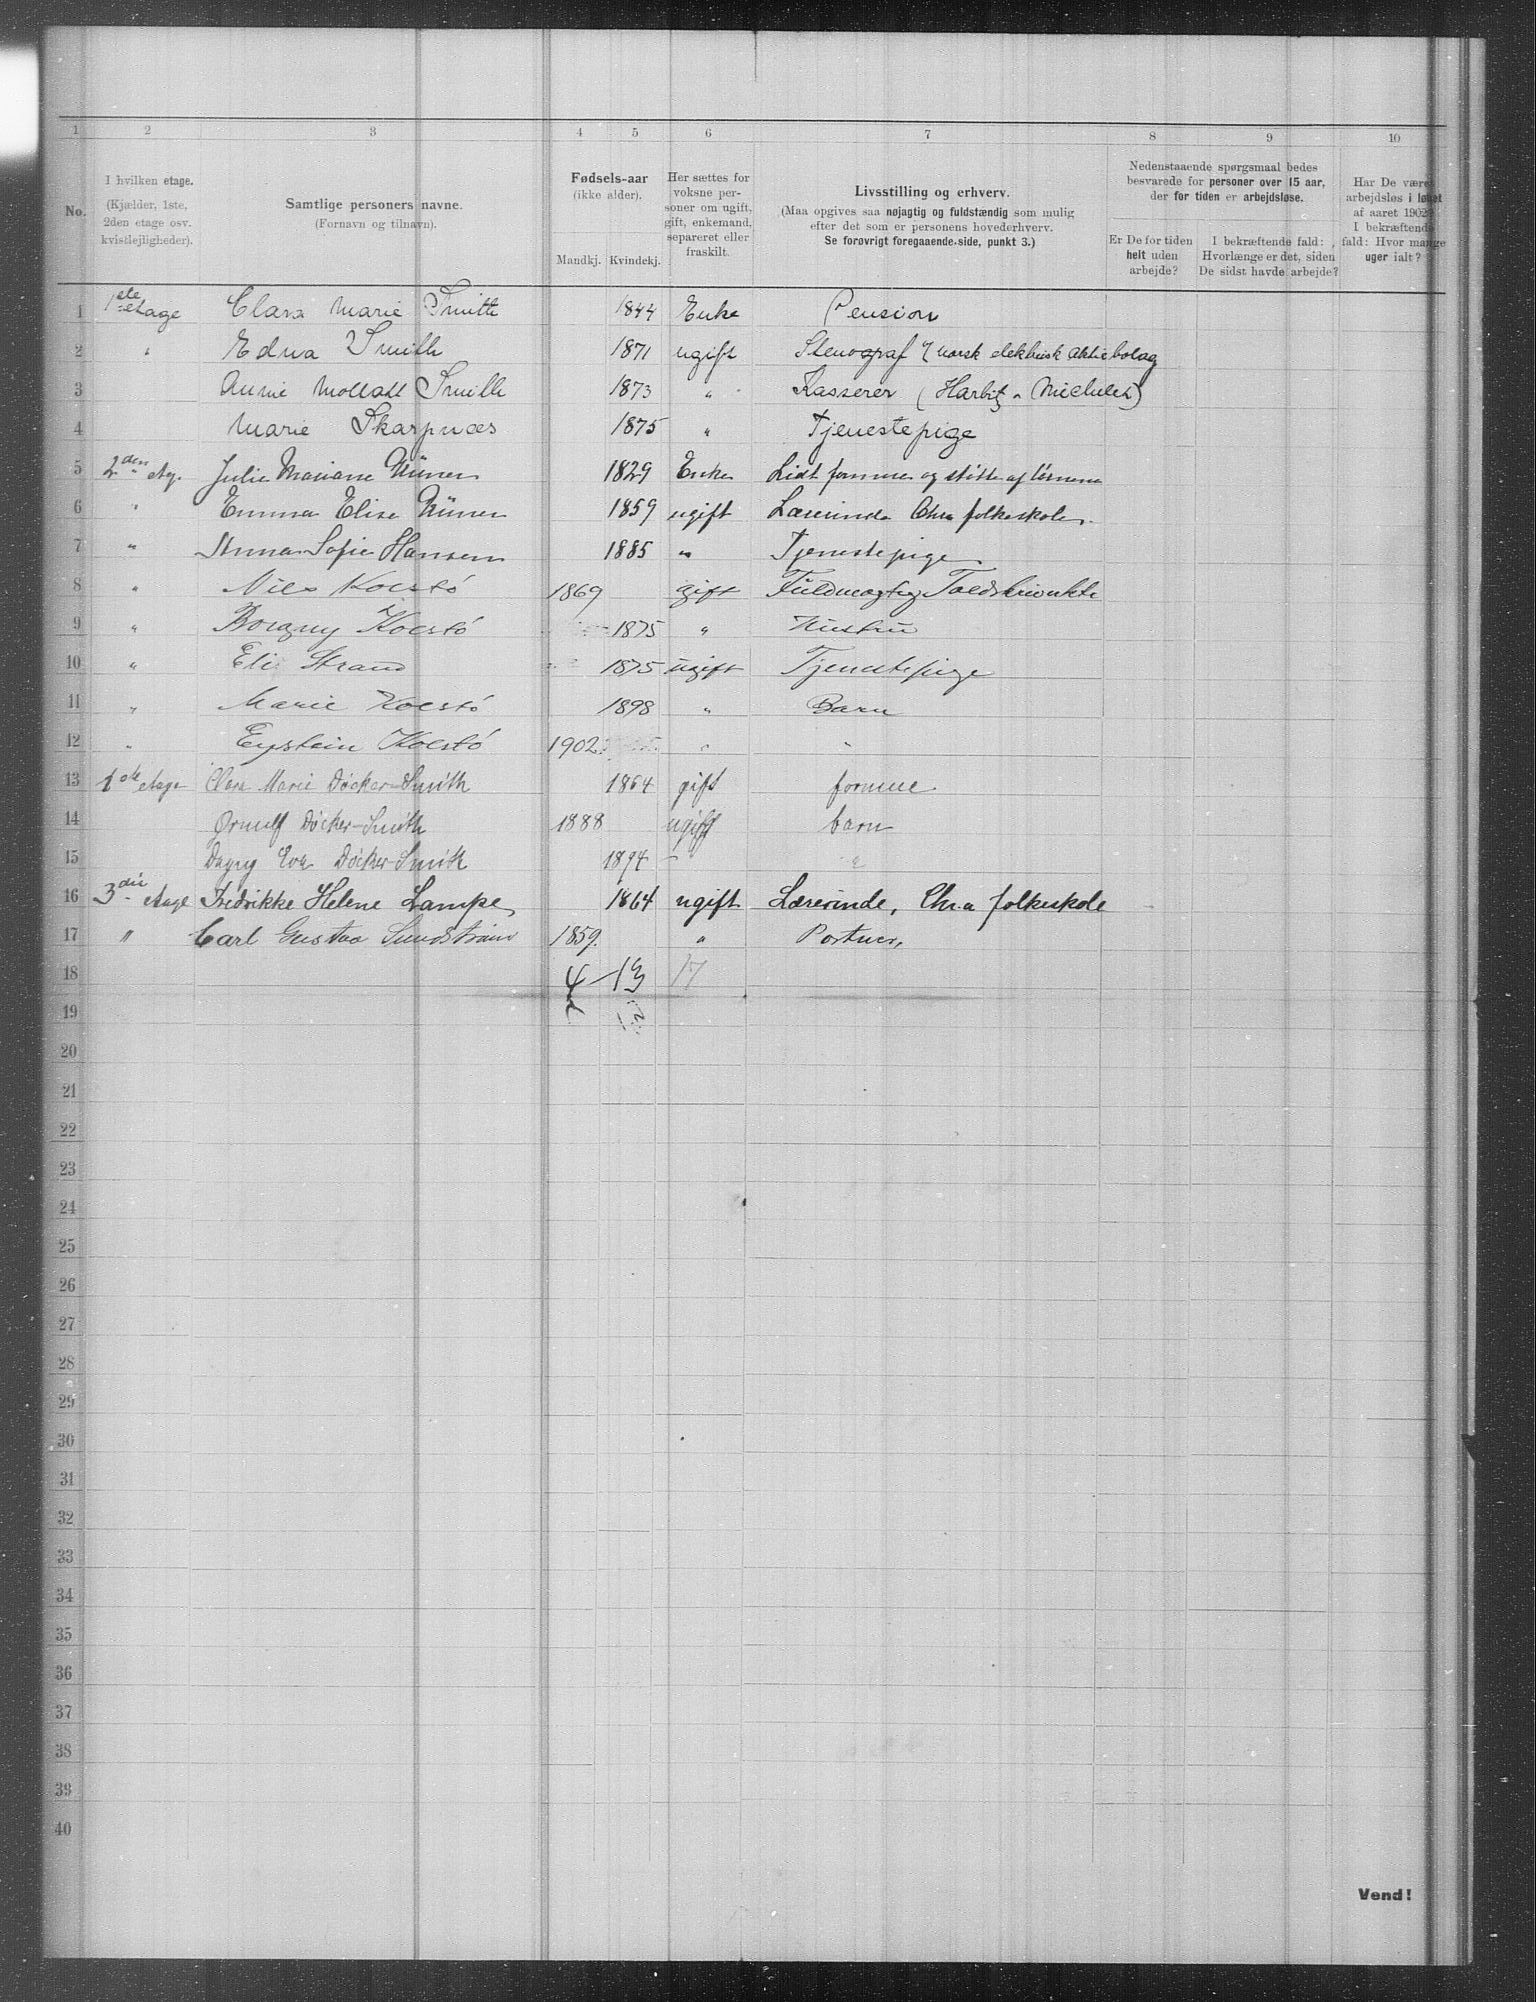 1 2 3 4 5 6 7 8 9 10
No.
I hvilken etage.
(Kjælder, 1ste,
2den etage osv.
kvistlejligheder).
Samtlige personers navne.
(Fornavn og tilnavn).
Fødsels-aar
(ikke alder).
Mandkj. Kvindekj.
Her sættes for
voksne per-
soner om ugift,
gift, enkemand,
separeret eller
fraskilt.
Livsstilling og erhverv.
(Maa opgives saa nøjagtig og fuldstændig som mulig
efter det som er personens hovederhverv.
Se forøvrigt foregaaende side, punkt 3.)
Nedenstaaende spørgsmaal bedes
besvarede for personer over 15 aar,
der for tiden er arbejdsløse.
Er De for tiden
helt uden
arbejde?
I bekræftende fald:
Hvorlænge er det, siden
De sidst havde arbejde?
Har De været
arbejdsløs i løbet
af aaret 1902?
I bekræftende
fald: Hvor mange
uger ialt?
1 1ste etage Clara Marie Smith 1844 Enke Pension
2 " Edna Smith 1871 ugift Stenograf norsk elektrisk Aktiebolag
3 Annie Smith 1873 " Kasserer (Harbitz
4 Marie Skarpnæs 1875 " Tjenestepige
5 2den etg. Julie Mariane 1829 Enke Lidt formue og støtte af
6 " Emma Elise 1859 ugift Lærerinde Chra folkeskole.
7 " Anna Sofie Hansen 1885 " Tjenestepige
8 " Nils Kolstö 1869 gift Fuldmægtig
9 " Borgny Kolstö 1875 " Hustru
10 " Eli Strand 1875 ugift Tjenestepige
11 " Marie Kolstö 1898 " Barn
12 " Eystein Kolstö 1902 " "
13 1ste etage Clara Marie Döcker-Smith 1864 gift formue
14 Ørnulf Döcker-Smith 1888 ugift barn
15 Dagny Eva Döcker-Smith 1894 – "
16 3die etage Fredrikke Helene Lampe 1864 ugift Lærerinde, Chra folkeskole
17 " Carl Gustav Sundström 1859. " Portner,
18 4 – 13 17
19
20
21
22
23
24
25
26
27
28
29
30
31
32
33
34
35
36
37
38
39
40
Vend!